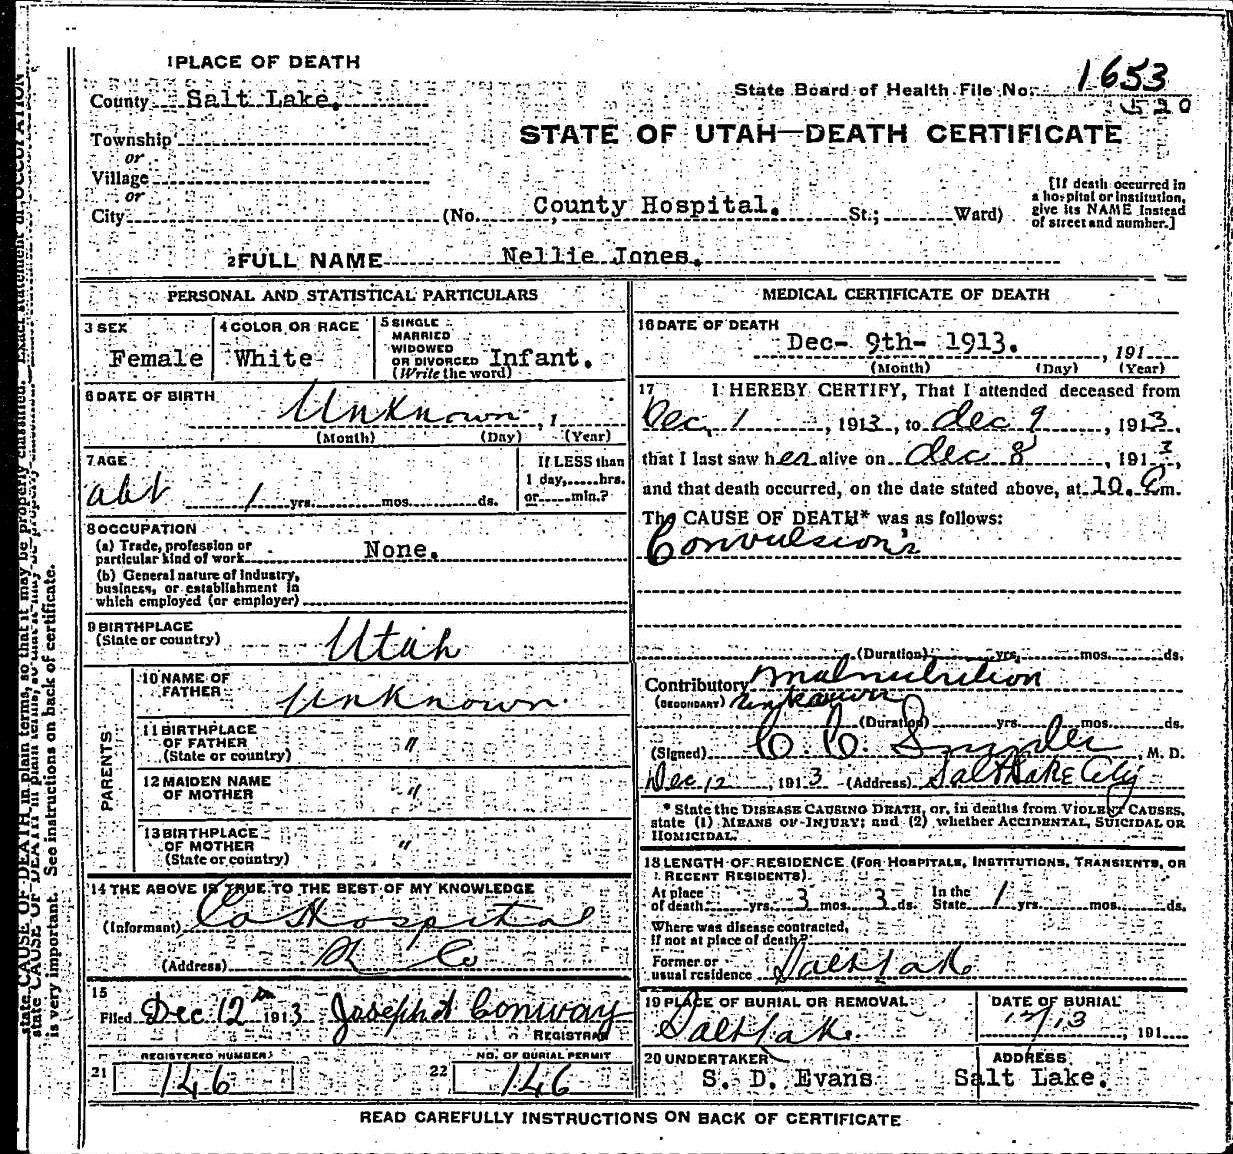 1 PLACE OF DEATH
County Salt Lake.
State Board of Health File No. 1653
520
Township
or
Village
or
City (No. County Hospital. St.; Ward)
STATE OF UTAH—DEATH CERTIFICATE
[If death occurred in
a hospital or institution,
give its NAME instead
of street and number.]
2 FULL NAME Nellie Jones.
PERSONAL AND STATISTICAL PARTICULARS
3 SEX
Female
4 COLOR OR RACE
White
5 SINGLE
MARRIED
WIDOWED
OR DIVORCED Infant.
(Write the word)
6 DATE OF BIRTH
Unknown, 1
(Month) (Day) (Year)
7 AGE
abt 1 yrs. mos. ds.
If LESS than
1 day, hrs.
or min.?
8 OCCUPATION
(a) Trade, profession or
particular kind of work None.
(b) General nature of industry,
business, or establishment in
which employed (or employer)
9 BIRTHPLACE
(State or country) Utah
PARENTS
10 NAME OF
FATHER Unknown
11 BIRTHPLACE
OF FATHER "
(State or country)
12 MAIDEN NAME
OF MOTHER "
13 BIRTHPLACE
OF MOTHER "
(State or country)
14 THE ABOVE IS TRUE TO THE BEST OF MY KNOWLEDGE
(Informant) Co Hospital
(Address) Co
15
Filed Dec 12th 1913 Joseph H Conway
REGISTRAR
REGISTERED NUMBER
21 146
NO. OF BURIAL PERMIT
22 146
MEDICAL CERTIFICATE OF DEATH
16 DATE OF DEATH
Dec- 9th- 1913. , 191
(Month) (Day) (Year)
17 I HEREBY CERTIFY, That I attended deceased from
Dec. 1, 1913, to dec 9, 1913,
that I last saw her alive on dec 8, 1913,
and that death occurred, on the date stated above, at 10. m.
The CAUSE OF DEATH* was as follows:
Convulsion's
(Duration) yrs. mos. ds.
Contributory Malnutrition
(SECONDARY) unknown
(Duration) yrs. mos. ds.
(Signed) Snyder, M. D.
Dec 12, 1913 (Address) Salt Lake City
* State the DISEASE CAUSING DEATH, or, in deaths from VIOLENT CAUSES,
state (1) MEANS OF INJURY; and (2) whether ACCIDENTAL, SUICIDAL OR
HOMICIDAL.
18 LENGTH OF RESIDENCE (FOR HOSPITALS, INSTITUTIONS, TRANSIENTS, OR
RECENT RESIDENTS)
At place
of death yrs. 3 mos. 3 ds.
In the
State 1 yrs. mos. ds.
Where was disease contracted,
if not at place of death?
Former or
usual residence Salt Lake
19 PLACE OF BURIAL OR REMOVAL
Salt Lake.
DATE OF BURIAL
12/13 , 191
20 UNDERTAKER
S. D. Evans
ADDRESS
Salt Lake.
READ CAREFULLY INSTRUCTIONS ON BACK OF CERTIFICATE
state CAUSE OF DEATH in plain terms, so that it may be properly classified. Exact statement of OCCUPATION
is very important. See instructions on back of certificate.